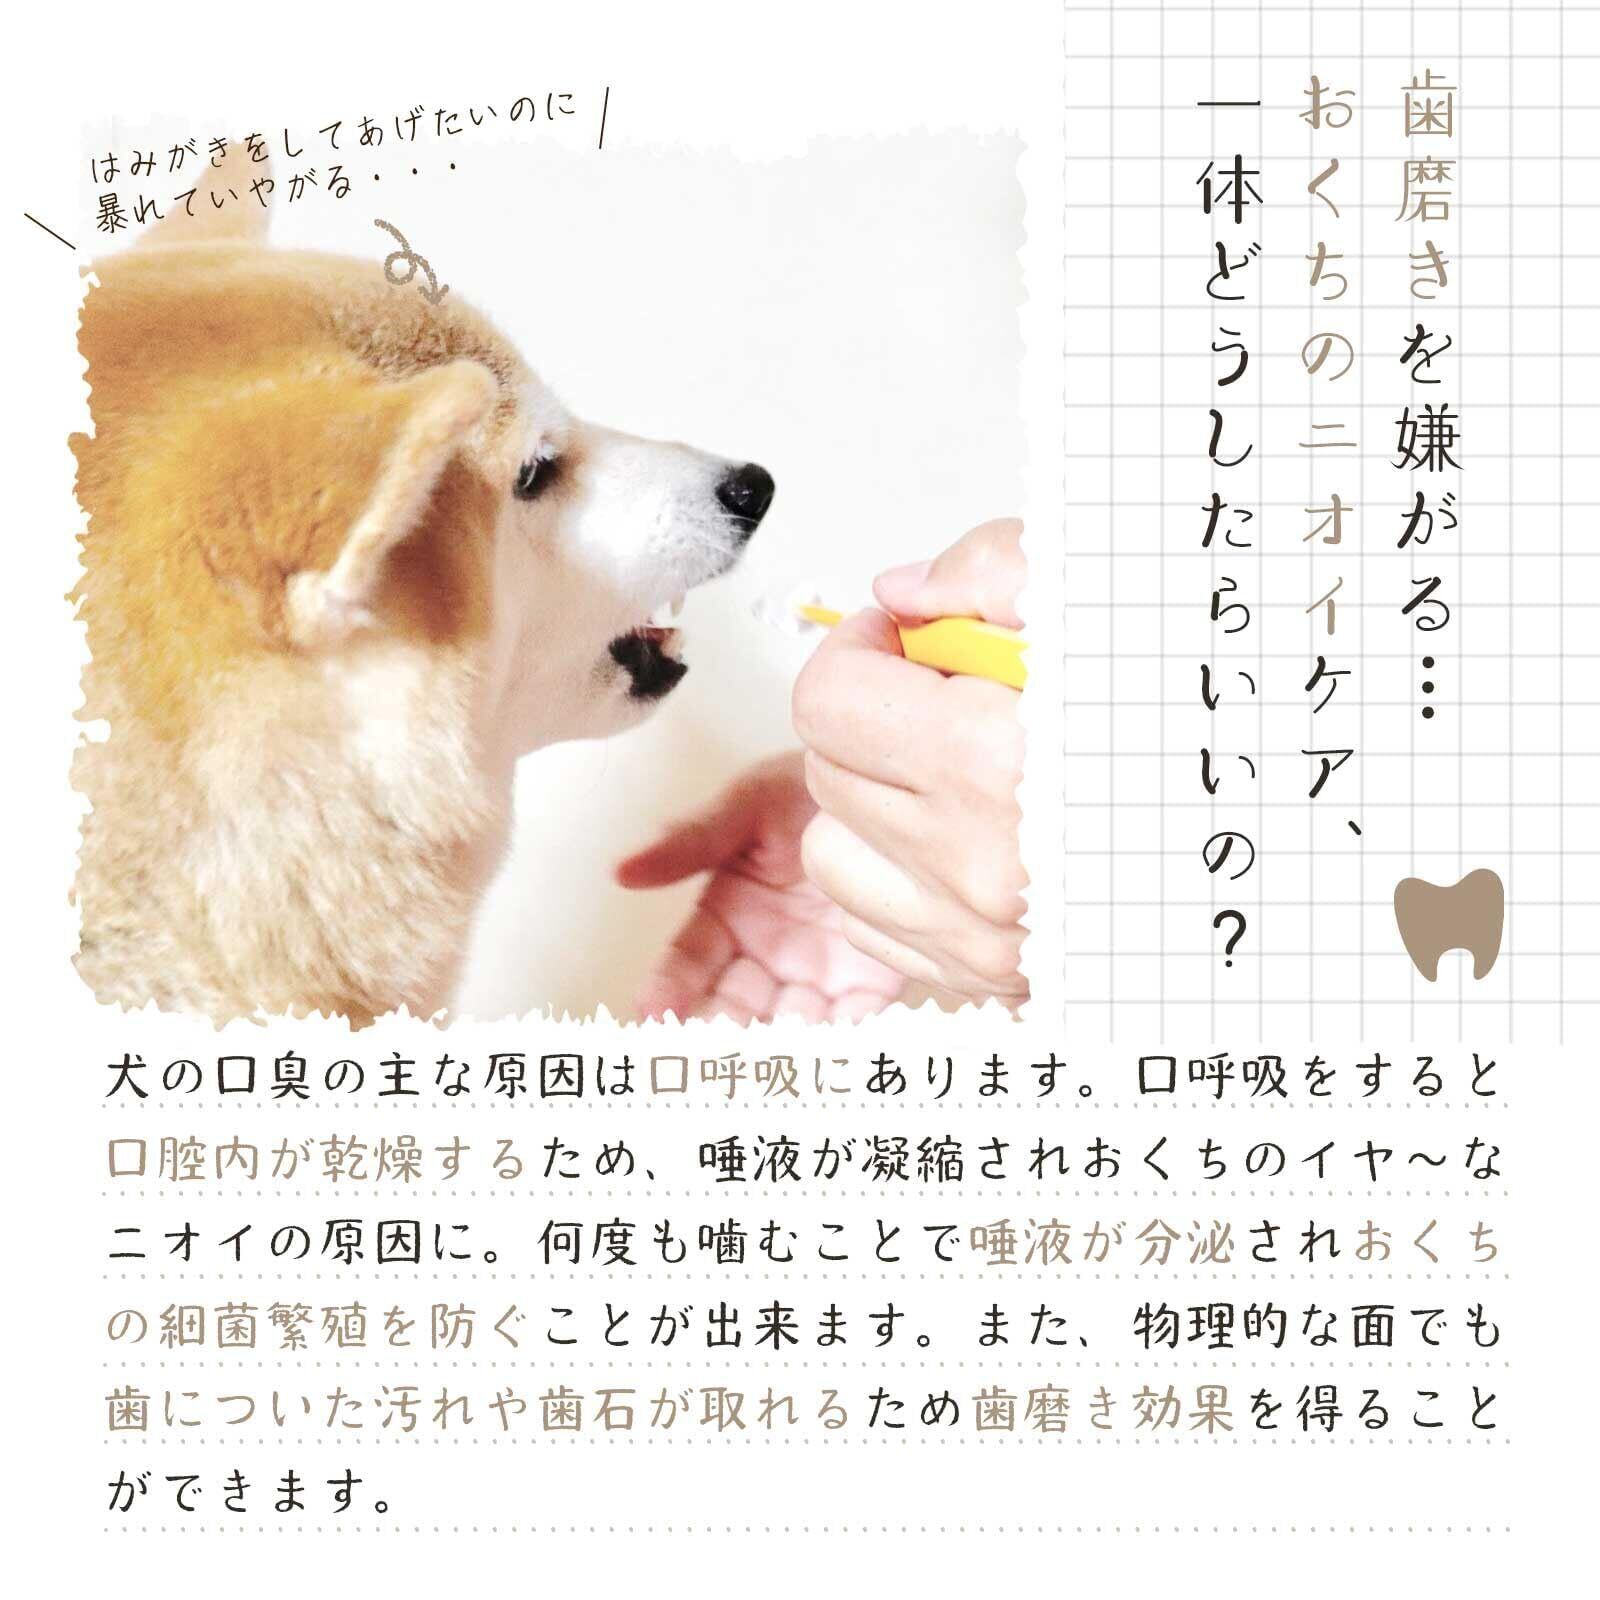 歯磨きを嫌がる…
おくちのニオイケア、
一体どうしたらいいの？
はみがきをしてあげたいのに
暴れていやがる・・・
犬の口臭の主な原因は口呼吸にあります。口呼吸をすると
口腔内が乾燥するため、唾液が凝縮されおくちのイヤ〜な
ニオイの原因に。何度も噛むことで唾液が分泌されおくち
の細菌繁殖を防ぐことが出来ます。また、物理的な面でも
歯についた汚れや歯石が取れるため歯磨き効果を得ること
ができます。